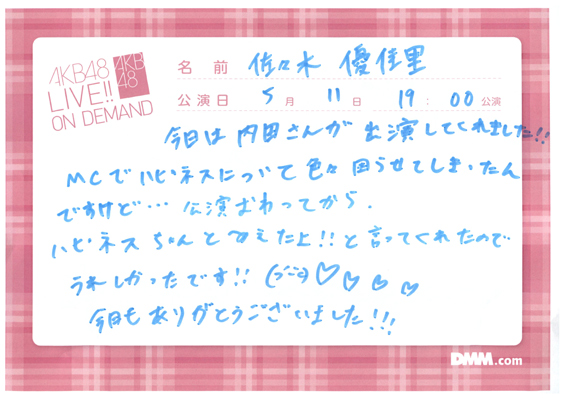 AKB48
LIVE!!
ON DEMAND
AKB
48
名前 佐々木 優佳里
公演日 5月 11日 19:00公演
今日は内田さんが出演してくれました!!
MCでハピネスについて色々困らせてしまったん
ですけど… 公演おわってから、
ハピネスちゃんと覚えたよ!!と言ってくれたので
うれしかったです!!
♡♡♡♡
今日もありがとうございました!!!
DMM.com